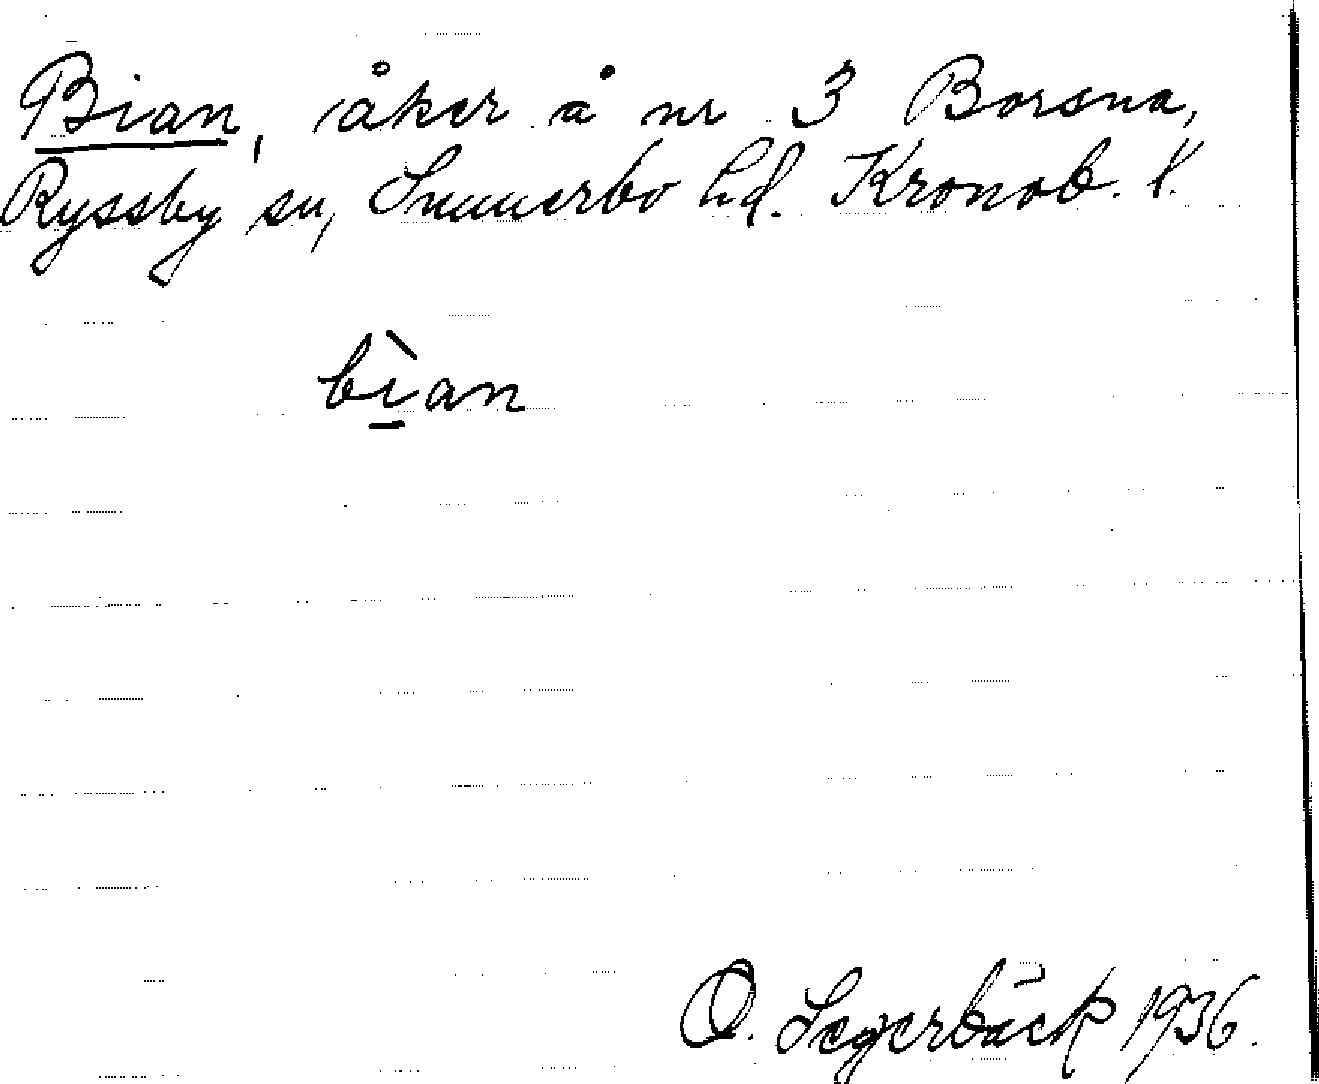 Bian, åker å nr 3 Borsna,
Ryssby sn, Sunnerbo hd. Kronob. l.
bìan
O. Segerbäck 1936.